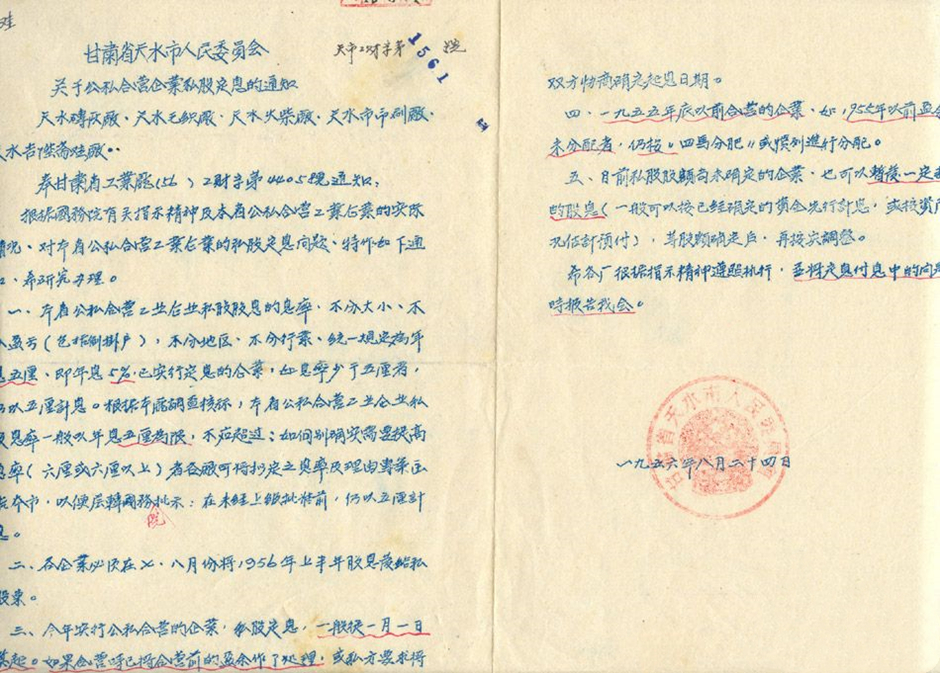 甘肃省天水市人民委员会
天市工财字第1561號
关于公私合营企業私股定息的通知
天水磚灰廠、天水毛織廠、天水火柴廠、天水市印刷廠、
奉甘肃省工業廳(56)工财字第4405號通知:
根据國務院有关指示精神及本省公私合营工業企業的实际
情况、对本省公私合营工業企業的私股定息问题、特作如下通
知、希研究办理。
一、本省公私合营工业企业私股股息的息率、不分大小、不
分盈亏(包括個别户)、不分地区、不分行業、统一規定為年
息五厘、即年息5%.已实行定息的企業,如息率少于五厘者,
仍以五厘計息。根据本廳調查核标,本省公私合营工业企业私
股息率一般以年息五厘為限,不应超过;如個别确实需要提高
息率(六厘或六厘以上)者各廠可将拟定之息率及理由專案函
告本市,以便层轉國務院批示:在未经上级批准前,仍以五厘計
息。
二、各企業必须在七、八月份将1956年上半年股息發给私
股東。
三、今年实行公私合营的企業,私股定息,一般從一月一日
算起。如果合营时已将合营前的盈余作了处理,或私方要求得
双方协商确定起息日期。
四、一九五五年底以前合营的企業、如,1955年以前盈余
未分配者,仍按"四馬分肥"或慣例進行分配。
五、目前私股股額尚未确定的企業、也可以暫發一定
的股息(一般可以按已經确定的資金先行計息,或按資产
况估計預付),其股額确定后,再按实調整。
希各厂根据指示精神遵照执行,並将定息付息中的问题
时报告我会。
甘肃省天水市人民委員會
一九五六年八月二十四日